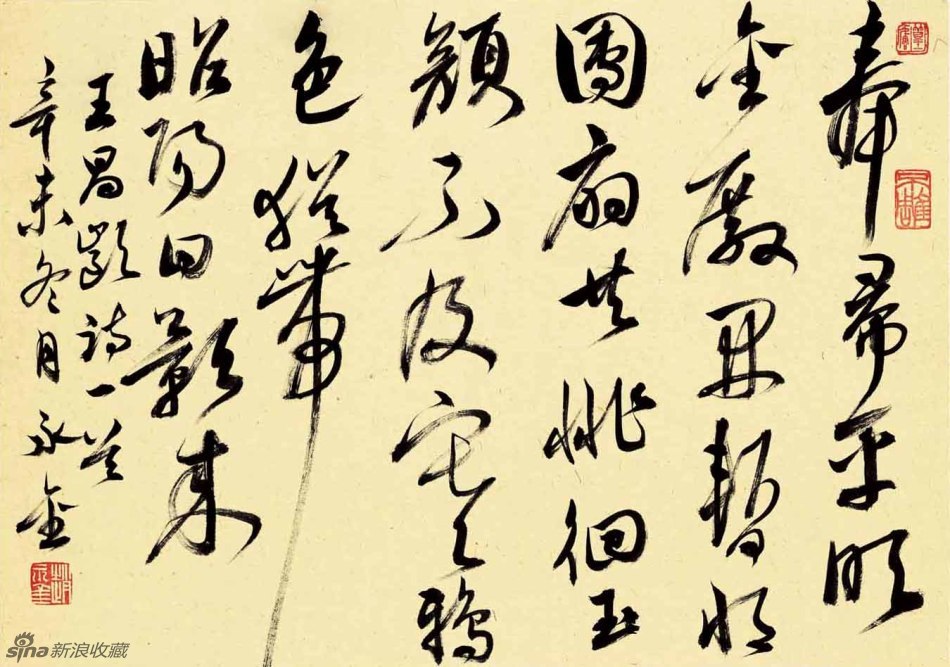 奉帚平明
金殿開暫將
團扇共徘徊玉
顏不及寒鴉
色猶帶
昭陽日影來
王昌齡诗一首
辛未冬月永金
sina新浪收藏